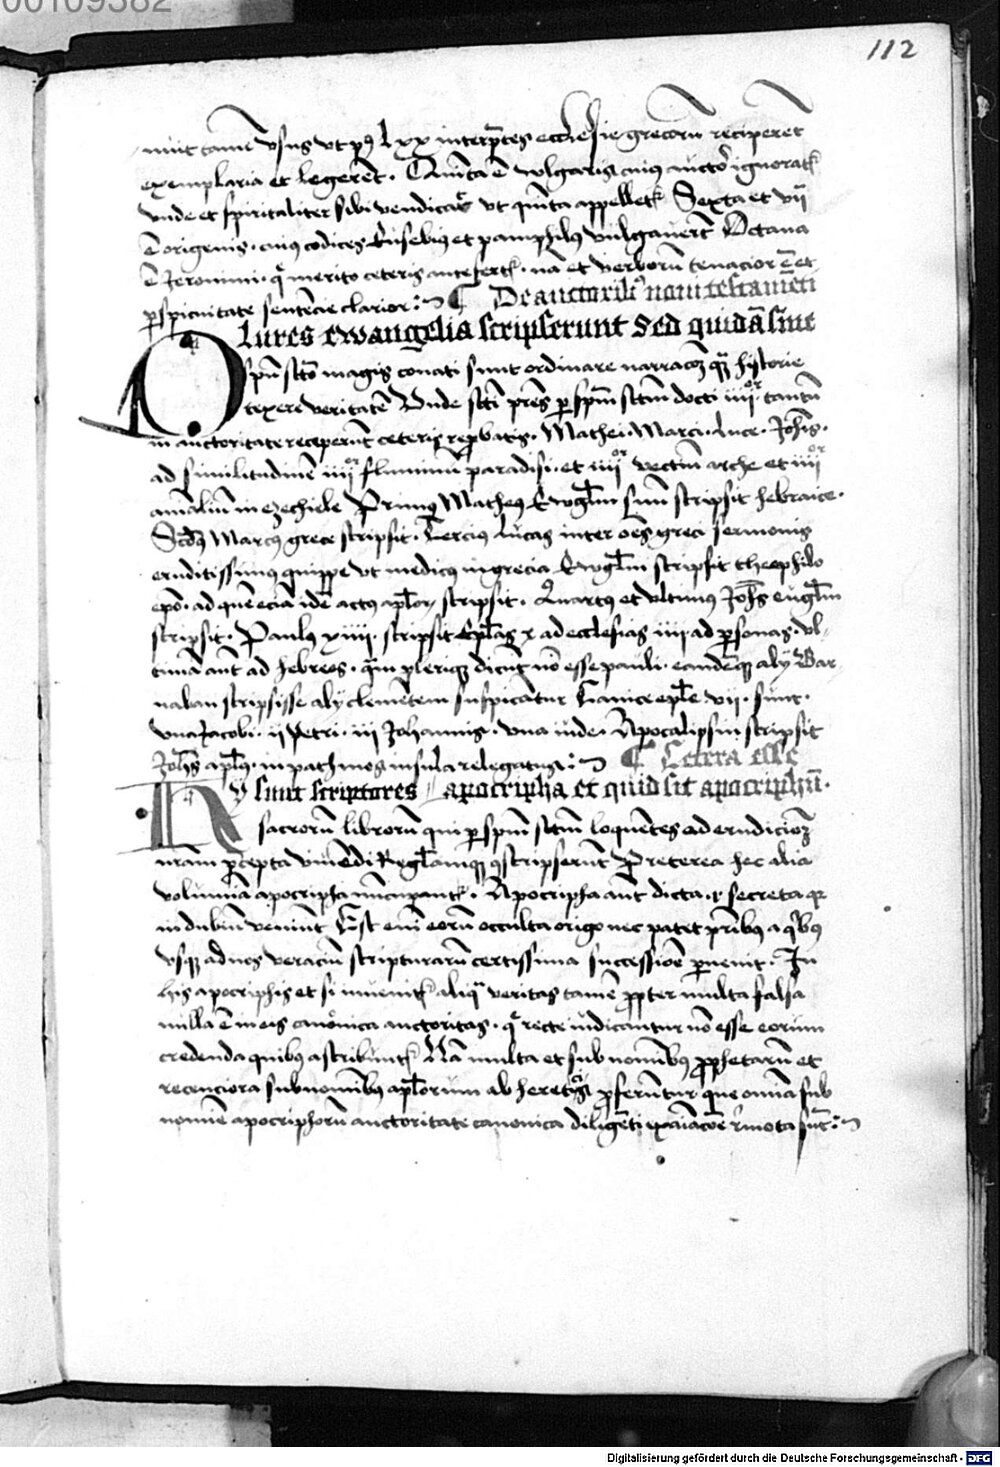 00109382
112
nuit tamē vsus vt pꝰ lxx interp̄tes ecclesie grecorū reciperēt
exemplaria et legerēt. Quīta ē vulgaris cuius auctor ignoratꝛ
vnde et spiritaliter sibi vendicat vt quīta appelletꝛ Sexta et vii
ē origenis. cuius codices Eusebius et pamphilus vulgauerūt Octaua
ē Jeronimi. q̄ merito ceteris antefertꝛ. nā et verborū tenacior ē et
ꝑspicuitate sentēcie clarior: De auctoribꝰ noui testamēti
Plures ewangelia scripserunt Sed quidā sine
spū sctō magis conati sunt ordinare narracōꝫ qꝫ historie
texere veritatē Vnde scti pr̄es ꝑ spm̄ sctm̄ docti iiiior tantū
in auctoritate receperūt ceteris reprobatis. Mathei. Marci. Luce. Joh̄is.
ad similitudinē iiiior fluminū paradisi. et iiiior vectiū arche et iiiior
aīaliū in ezechiele Primus Matheus Ewglm̄ suū scripsit hebraice.
Scd̄s Marcus grece scripsit. Tercius lucas inter oēs greci sermonis
eruditissimus quippe vt medicus in grecia Ewglm̄ scripsit theophilo
ep̄o. ad quē eciā idē actus apl̄oꝝ scripsit. Quartus et vltimus Joh̄s euglm̄
scripsit. Paulus xiiii. scripsit Ep̄las x ad ecclesias iiii ad personas. vl-
timā aūt ad hebreos. quā pleriqꝫ dicūt nō esse pauli. eandēqꝫ alij Bar-
naban scripsisse alij clemētem suspicātur Canice ep̄le vii. sunt.
vna Jacobi. ii Petri. iii Johannis. vna iude. Apocalipsin scripsit
Joh̄s ap̄lus. in pathmos insula relegatus: Cetera esse
Hy sunt scriptores apocripha et quid sit apocriphū.
sacrorū librorū qui ꝑ spm̄ sctm̄ loquētes ad erudicioꝫ
nr̄am p̄cepta viuēdi Reglāmqꝫ ꝯscripserūt Preterea hec alia
volumīa apocripha nūcupantꝛ. Apocripha aūt dicta .i. secreta qꝛ
in dubiū veniūt Est enī eorū occulta origo nec patet pr̄ibus a qͥbus
vsqꝫ ad nos veraciū scripturarū certissima successiōe ꝑuenit. In
his apocriphis et si inuenitꝛ aliqͣ veritas tamē ꝓpter multa falsa
nulla ē in eis canōnica auctoritas. q̄ recte iudicantur nō esse eorum
credenda quibus ascribuntꝛ Nā multa et sub nomībus ꝓphetarū et
recenciora sub nomībus apl̄orum ab heretycis ꝓferūtur que omīa sub
nomīe apocriphorū auctoritate canonica diligēti exaīacōe rēmota sūt:
Digitalisierung gefördert durch die Deutsche Forschungsgemeinschaft - DFG